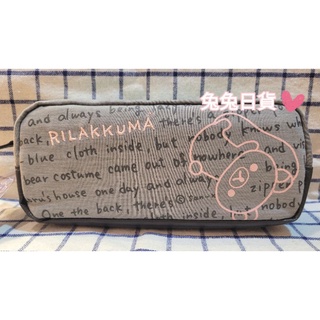 兔兔日貨
and always being there's a zipper
back, RILAKKUMA
blue cloth inside, but nobody knows wh
bear costume came out of nowhere and
being
aru's house one day and always
zipper
One the back, there's ©san-
inside, but nobody